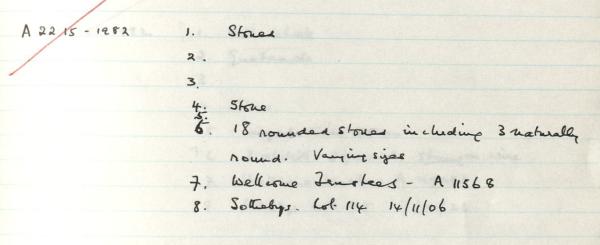 A 2215-1982 1. Stones
2.
3.
4. Stone
5.
6. 18 rounded stones including 3 naturally
round. Varying sizes
7. Wellcome Trustees - A 11568
8. Sothebys. Lot 114 14/11/06